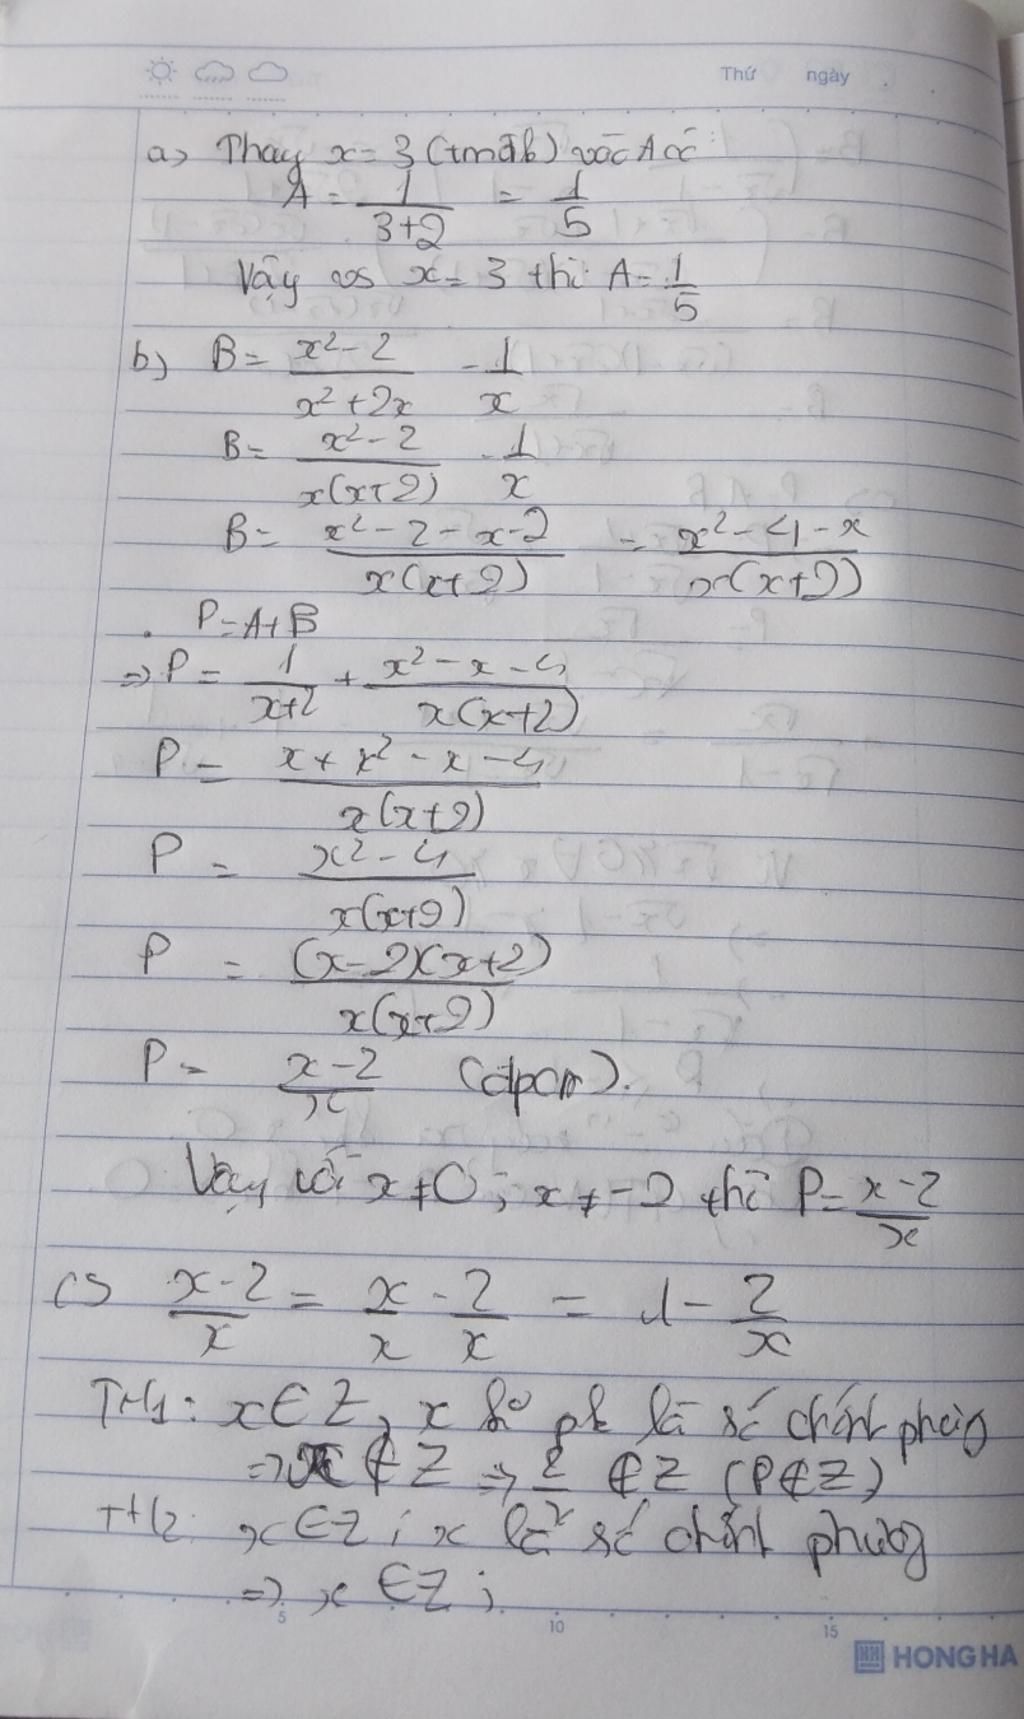 Thứ ngày
a) Thay x = 3 (tmđk) vào A có
A = 1/(3+2) = 1/5
Vậy vs x = 3 thì A = 1/5
b) B = (x² - 2)/(x² + 2x) - 1/x
B = (x² - 2)/(x(x+2)) - 1/x
B = (x² - 2 - x - 2)/(x(x+2)) = (x² - 4 - x)/(x(x+2))
. P = A + B
=> P = 1/(x+2) + (x² - x - 4)/(x(x+2))
P = (x + x² - x - 4)/(x(x+2))
P = (x² - 4)/(x(x+2))
P = ((x-2)(x+2))/(x(x+2))
P = (x-2)/x (đpcm).
Vậy với x ≠ 0 ; x ≠ -2 thì P = (x-2)/x
c) (x-2)/x = x/x - 2/x = 1 - 2/x
TH1: x ∈ Z, x là số chính phương
=> x ∉ Z => 2/x ∉ Z (P ∉ Z)
TH2: x ∈ Z ; x là số chính phương
=> x ∈ Z ;
5 10 15
HH HONG HA